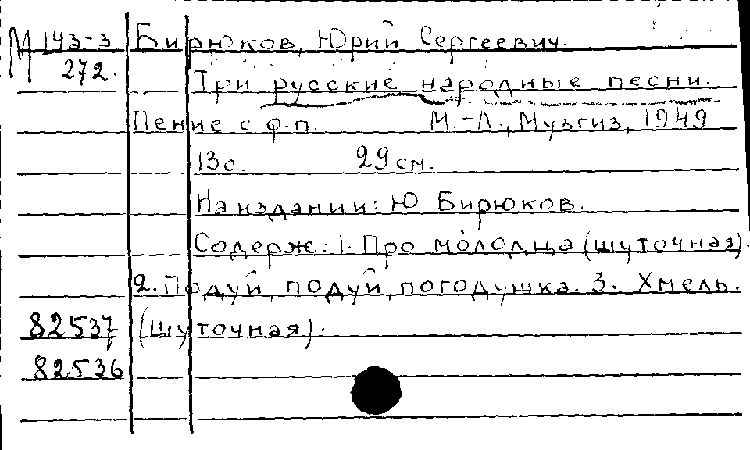 М 143-3 Бирюков, Юрий Сергеевич.
272. Три русские народные песни.
Пение с ф.п. М.-Л., Музгиз, 1949
13с. 29 см.
На издании: Ю Бирюков.
Содерж.: 1. Про молодца (шуточная).
2. Подуй, подуй, погодушка. 3. Хмель.
82537 (шуточная).
82536